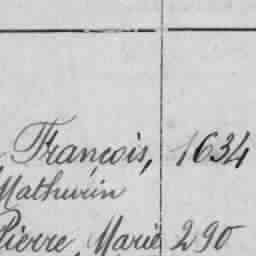 François, 1634
Mathurin
Pierre Marie 290